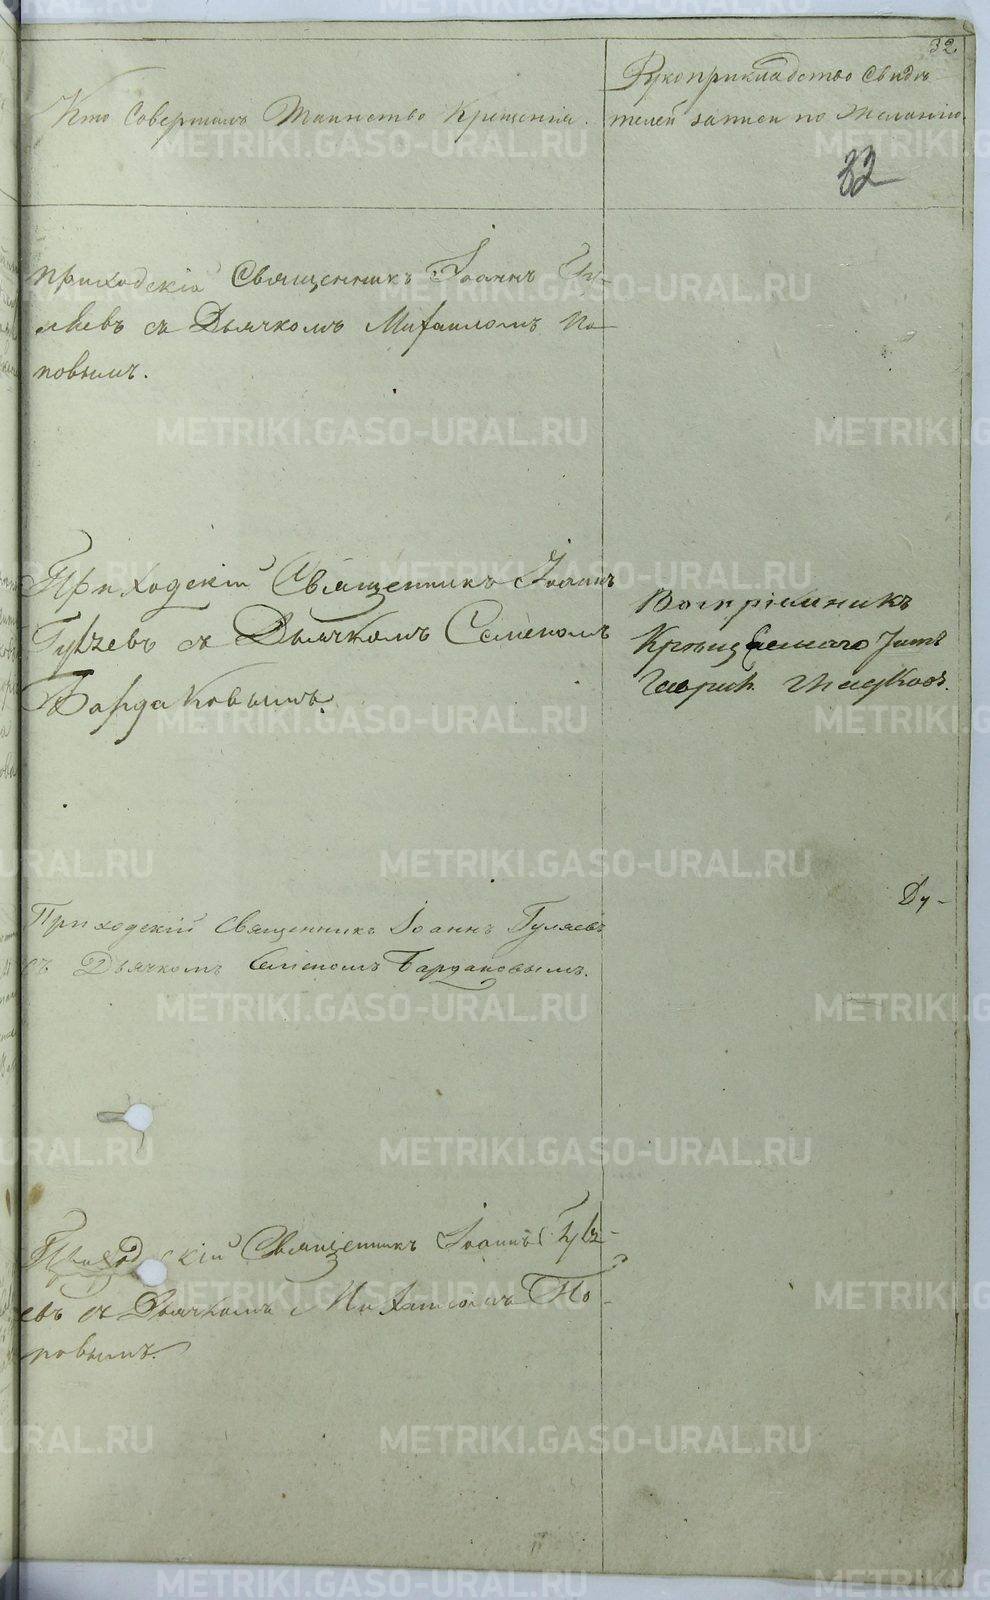 32.
Кто Совершалъ Таинство Крещенія.
Рукоприкладство Свидѣ-
телей записи по Желанію.
32
приходскій Священникъ Іоаннъ Гу-
ляевъ съ Дьячкомъ Михаиломъ По-
повымъ.
Приходскій Священникъ Іоаннъ
Гуляевъ съ Дьячкомъ Семеномъ
Бардаковымъ.
Воспріемникъ
Приходскій Священникъ Іоаннъ Гуляевъ
съ Дьячкомъ Семеномъ Бардаковымъ.
Ду-
Приходскій Священникъ Іоаннъ Гуля-
евъ съ Дьячкомъ Михаиломъ По-
повымъ.
METRIKI.GASO-URAL.RU